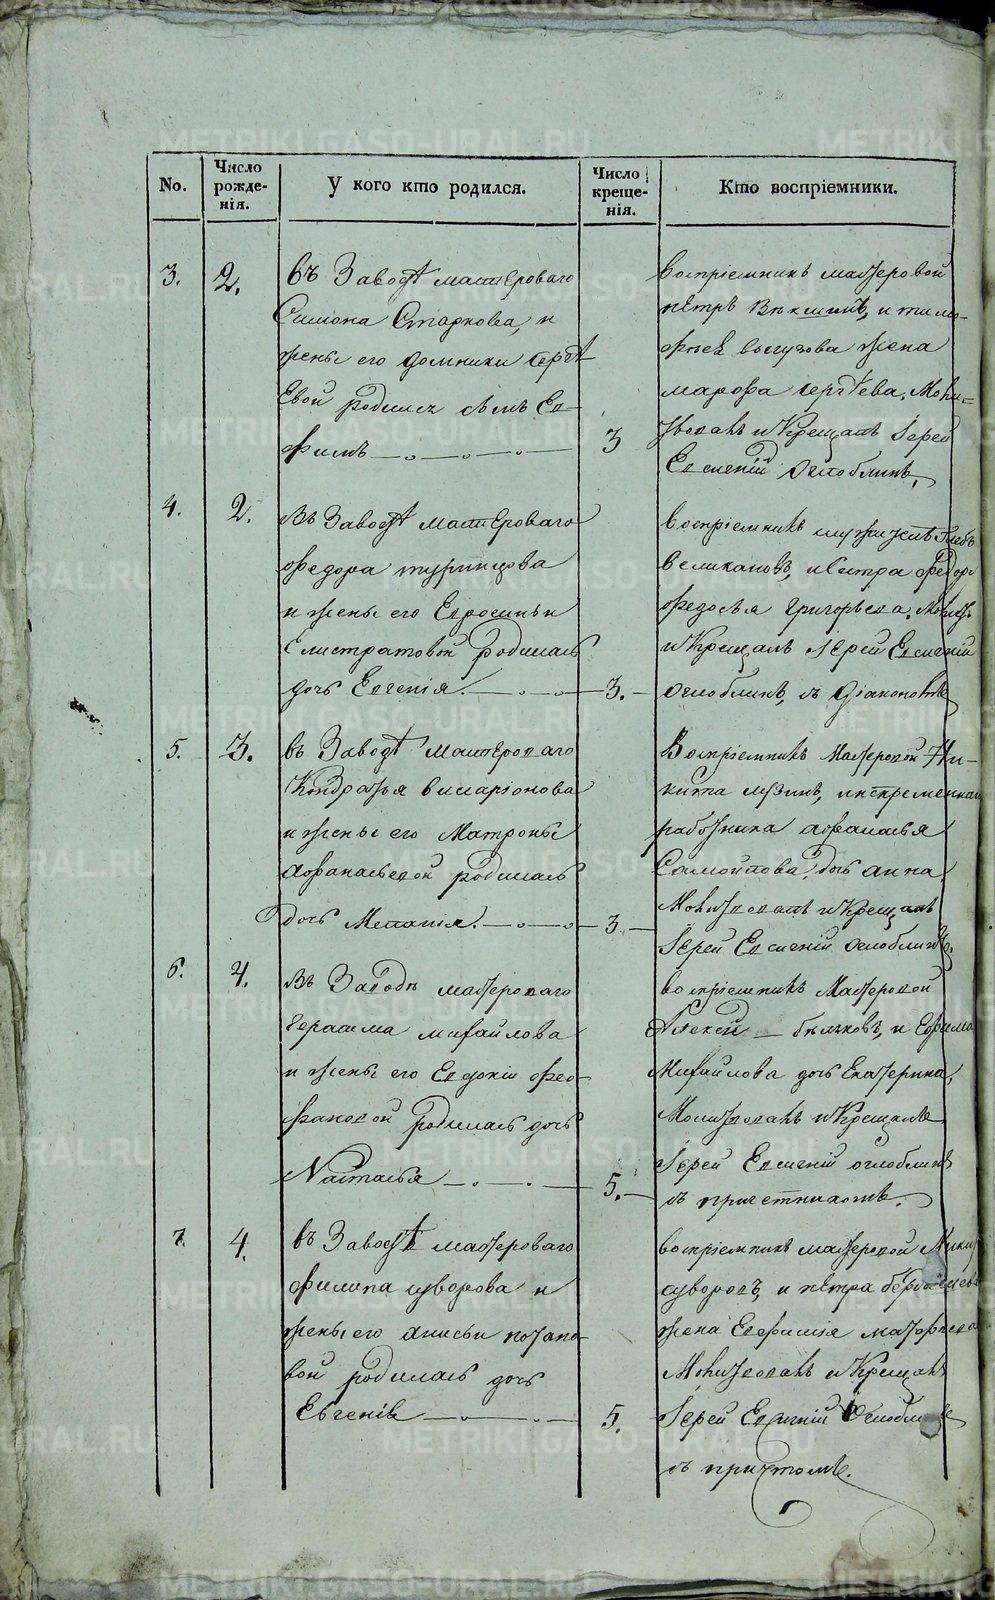 METRIKI.GASO-URAL.RU
No.
Число рожде- нія.
У кого кто родился.
Число креще- нія.
Кто воспріемники.
3.
2.
въ Заводѣ мастероваго
Симона Старкова, и
жены его Домники Сергѣ
евой родился сынъ Ев-
фимъ
3
воспріемникъ мастеровой
Петръ и тимо-
фѣея жена
марфа сергѣева. Моли-
твовалъ и Крещалъ Іерей
Евгеній Оглоблинъ,
4.
2.
Въ Заводѣ мастероваго
Федора туринцова
и жены его Евросиньи
Елистратовой родилась
дочь Евгенія.
3.
воспріемникъ служитель Глебъ
Великановъ, и сестра
Федосья григорьева. Молит.
и Крещалъ Іерей Евгеній
Оглоблинъ, съ Діакономъ
5.
3.
въ Заводѣ Мастероваго
Кондратья виларіонова
и жены его Матроны
Афанасьевой родилась
дочь Меланія.
3.
Воспріемникъ Мастеровой Ни-
кита и непременнаго
работника афанасья
Самойлова, дочь анна.
Молитвовалъ и Крещалъ
Іерей Евгеній Оглоблинъ,
6.
4.
Въ Заводѣ мастероваго
Герасима михайлова
и жены его Евдокіи Фео-
фановой родилась дочь
Настасья
5.
воспріемникъ Мастеровой
Алексѣй бѣлковъ, и Ефима
Михайлова дочь Екатерина,
Молитвовалъ и Крещалъ
Іерей Евгеній оглоблинъ
съ причетникомъ.
7.
4.
въ Заводѣ мастероваго
Филипа суворова и
жены его анисьи потапо-
вой родилась дочь
Евгенія
5.
воспріемникъ мастеровой
суворовъ, и петра
жена Евфимія матфѣева
Молитвовалъ и Крещалъ
Іерей Евгеній Оглоблинъ
съ причтомъ.